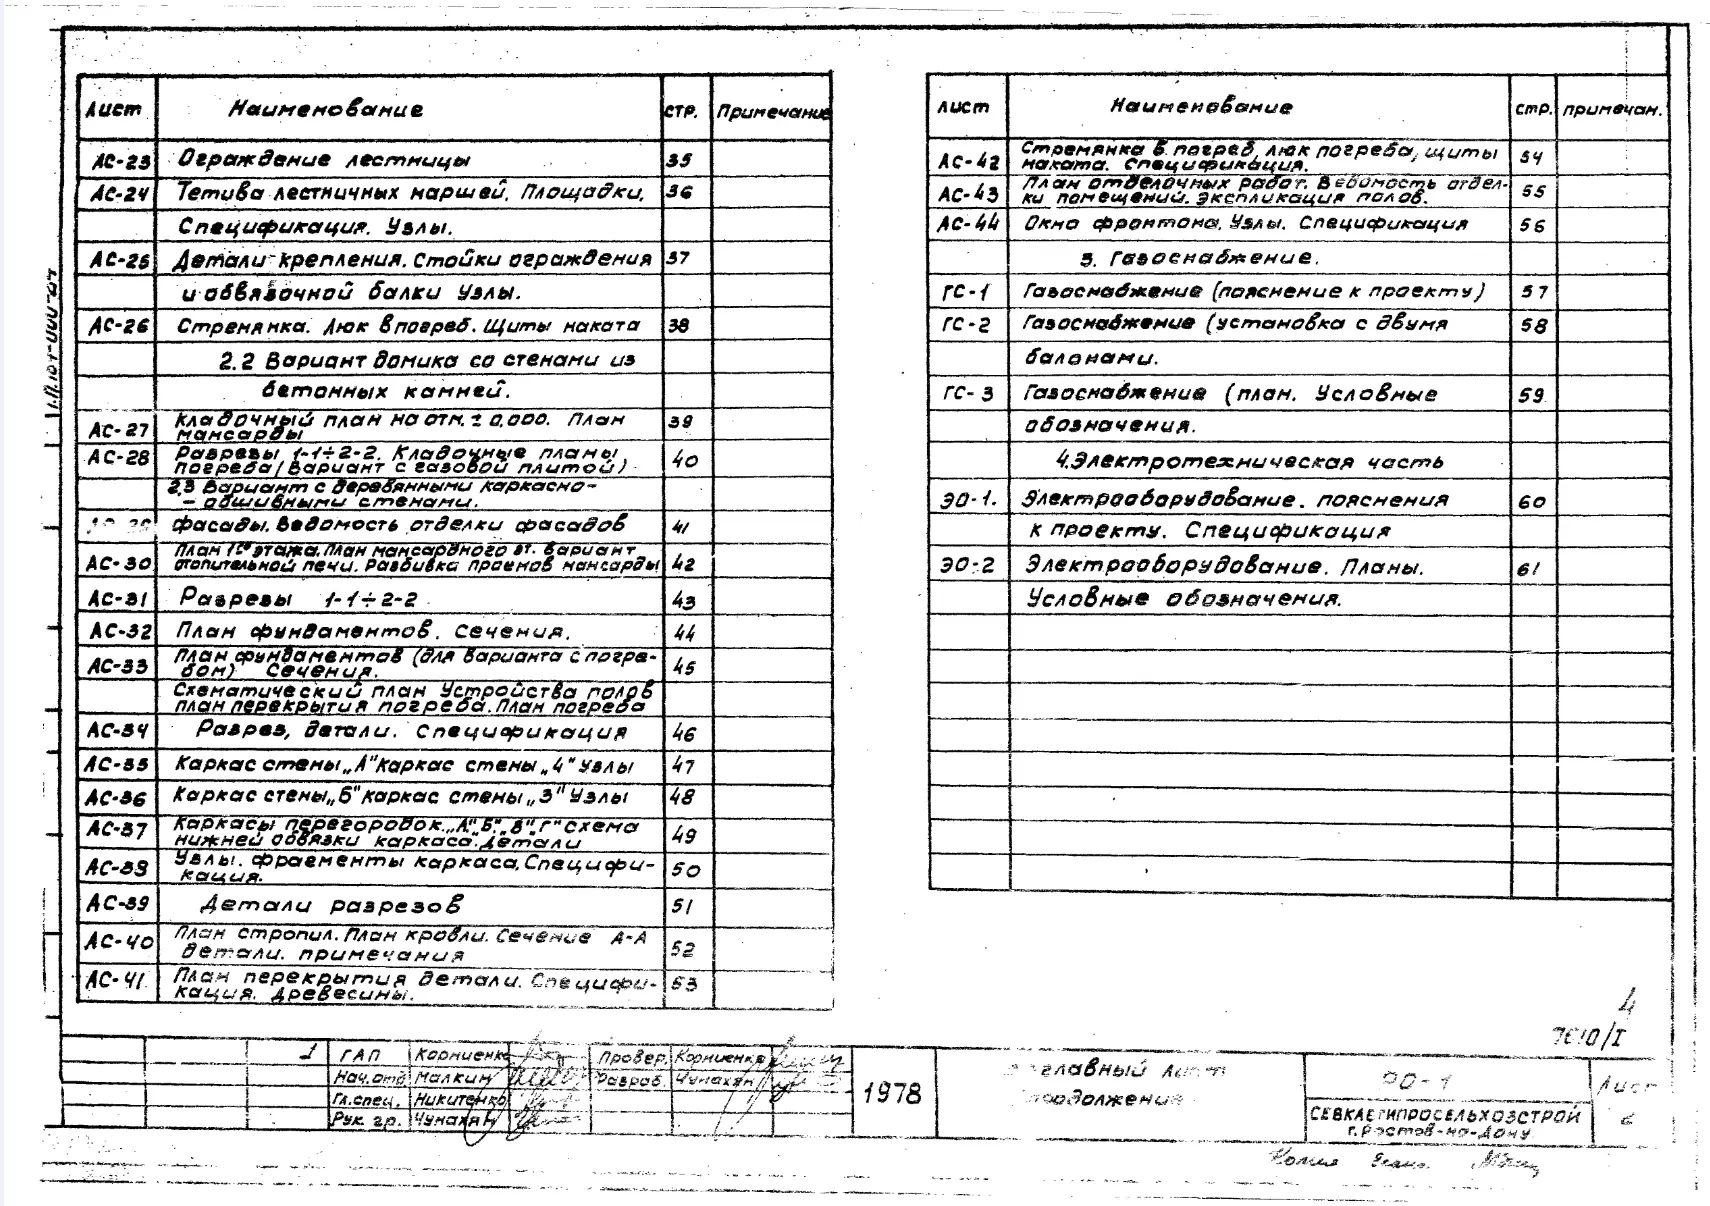 Лист Наименование стр. Примечание
АС-23 Ограждение лестницы 35
АС-24 Тетива лестничных маршей. Площадки. 36
Спецификация. Узлы.
АС-25 Детали крепления. Стойки ограждения 37
и обвязочной балки Узлы.
АС-26 Стремянка. Люк в погреб. Щиты наката 38
2.2 Вариант домика со стенами из
бетонных камней.
АС-27 Кладочный план на отм. ± 0.000. План 39
мансарды
АС-28 Разрезы 1-1÷2-2. Кладочные планы 40
погреба (Вариант с газовой плитой)
2.3 Вариант с деревянными каркасно-
- обшивными стенами.
Фасады. Ведомость отделки фасадов 41
АС-30 План 1го этажа. План мансардного эт. Вариант 42
отопительной печи. Разбивка проемов мансарды
АС-31 Разрезы 1-1÷2-2 43
АС-32 План фундаментов. Сечения. 44
АС-33 План фундаментов (для варианта с погре- 45
бом) Сечения.
Схематический план Устройства полов
план перекрытия погреба. План погреба
АС-34 Разрез, детали. Спецификация 46
АС-35 Каркас стены „А" Каркас стены „4" Узлы 47
АС-36 Каркас стены „Б" каркас стены „3" Узлы 48
АС-37 Каркасы перегородок „А", Б", В", Г" схема 49
нижней обвязки каркаса. Детали
АС-38 Узлы. фрагменты каркаса, Специфи- 50
кация.
АС-39 Детали разрезов 51
АС-40 План стропил. План кровли. Сечение А-А 52
детали. примечания
АС-41 План перекрытия детали. Специфи- 53
кация. Древесины.
Лист Наименование стр. примечан.
АС-42 Стремянка в погреб, люк погреба, щиты 54
наката. Спецификация.
АС-43 План отделочных работ. Ведомость отдел- 55
ки помещений. Экспликация полов.
АС-44 Окно фронтона. Узлы. Спецификация 56
3. Газоснабжение.
ГС-1 Газоснабжение (пояснение к проекту) 57
ГС-2 Газоснабжение (установка с двумя 58
балонами.
ГС-3 Газоснабжение (план. Условные 59
обозначения.
4. Электротехническая часть
ЭО-1. Электрооборудование. пояснения 60
к проекту. Спецификация
ЭО-2 Электрооборудование. Планы. 61
Условные обозначения.
4
7610/I
1 ГАП Корниенко Провер. Корниенко
Нач.отд Малкин Разраб. Чунахян
Гл.спец. Никитенко
Рук. гр. Чунахян
1978
заглавный лист
продолжение
ОО-1
Лист
6
СЕВКАВГИПРОСЕЛЬХОЗСТРОЙ
г. Ростов-на-Дону